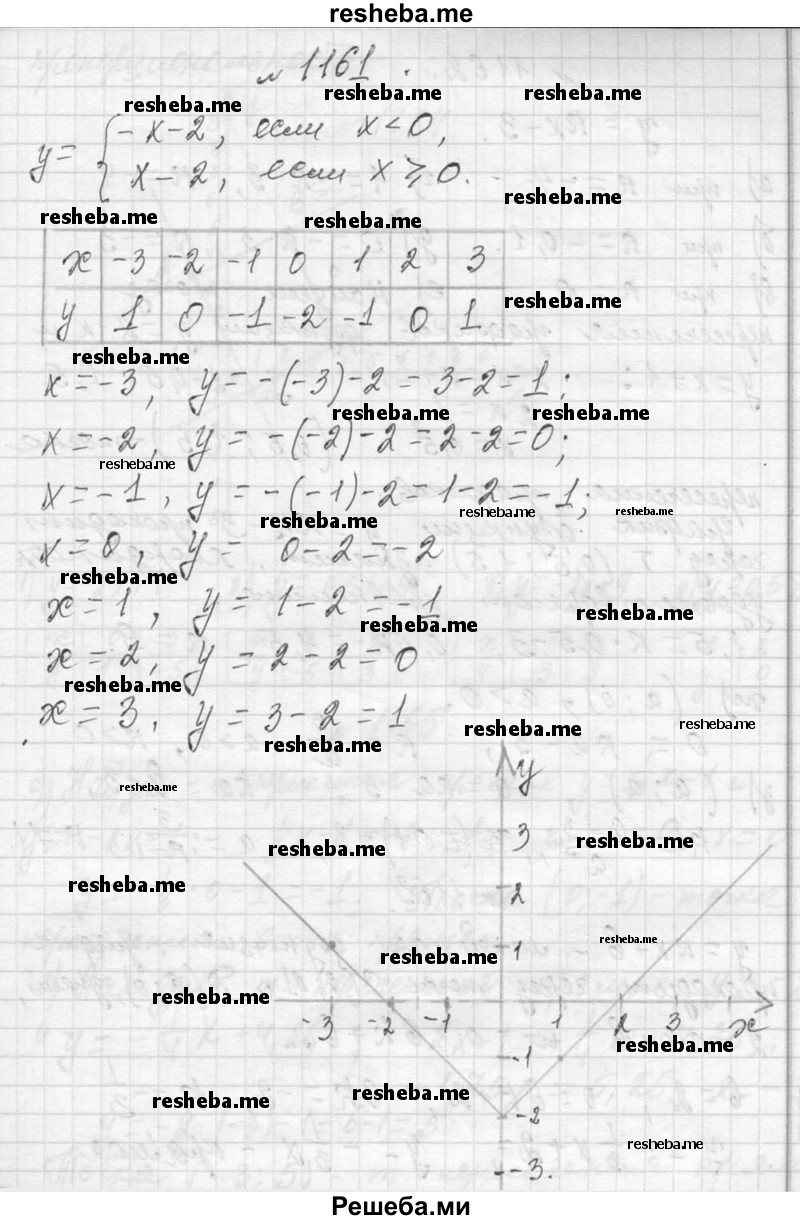 resheba.me
№ 1161.
resheba.me resheba.me resheba.me
y = { -x-2, если x<0,
x-2, если x⩾0.
resheba.me
resheba.me resheba.me
x -3 -2 -1 0 1 2 3
y 1 0 -1 -2 -1 0 1
resheba.me
resheba.me
x=-3, y=-(-3)-2=3-2=1;
resheba.me resheba.me
x=-2, y=-(-2)-2=2-2=0;
resheba.me
x=-1, y=-(-1)-2=1-2=-1;
resheba.me resheba.me resheba.me
x=0, y= 0-2=-2
resheba.me
x=1, y=1-2=-1
resheba.me resheba.me
x=2, y=2-2=0
resheba.me
x=3, y=3-2=1
resheba.me resheba.me
resheba.me
y
resheba.me
3
resheba.me resheba.me
resheba.me
2
resheba.me
1
resheba.me
resheba.me
-3 -2 -1 1 2 3 x
resheba.me
-1
resheba.me resheba.me
-2
resheba.me
-3.
Решеба.ми